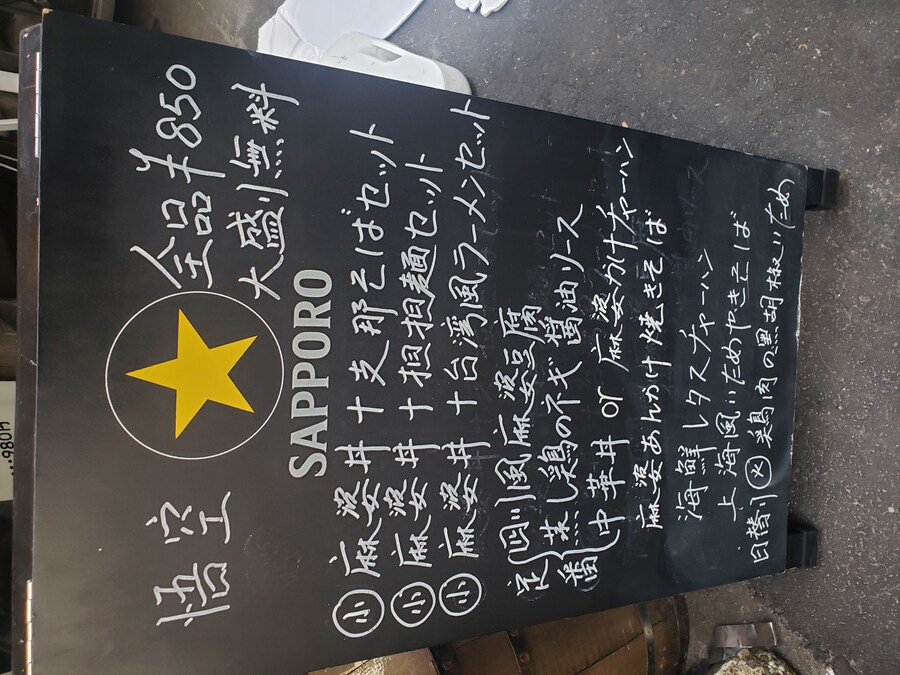 980円
悟空
全品¥850
大盛り無料
SAPPORO
小 麻婆丼+支那そばセット
小 麻婆丼+担担麺セット
小 麻婆丼+台湾風ラーメンセット
定番
四川風麻婆豆腐
蒸し鶏のネギ醤油ソース
中華丼 or 麻婆かけチャーハン
麻婆あんかけ焼きそば
海鮮レタスチャーハン
上海風いためやきそば
日替り 火 鶏肉の黒胡椒いため